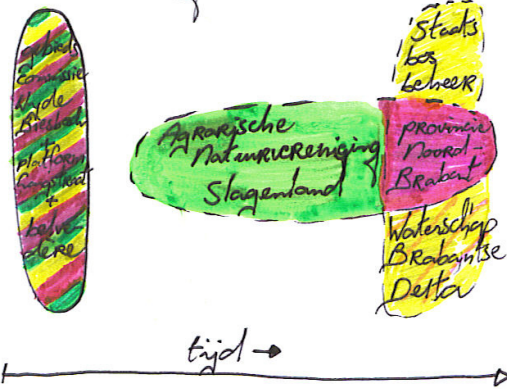 Gebieds
Commissie
Wijde
Biesbos
+
platform
+
belve-
dere
Agrarische
Natuurvereniging
Slagenland
Staats
bos
beheer
provincie
Noord-
Brabant
Waterschap
Brabantse
Delta
tijd →